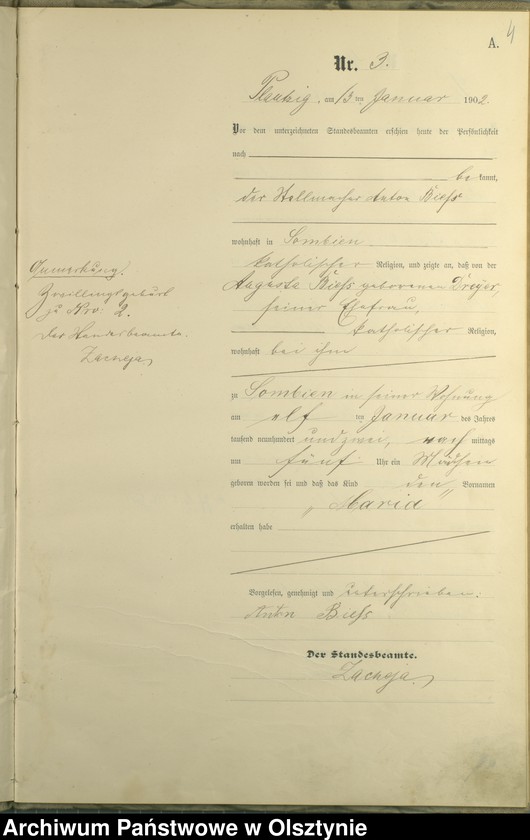 4
A.
Nr. 3.
am 13 ten Januar 1902.
Vor dem unterzeichneten Standesbeamten erschien heute der Persönlichkeit
nach
be kannt,
der Stellmacher Anton
wohnhaft in Sombien
katholischer Religion, und zeigte an, daß von der
Augusta geborenen Dreyer
seiner Ehefrau,
katholischer Religion,
wohnhaft bei ihm
zu Sombien in seiner Wohnung
am elf ten Januar des Jahres
tausend neunhundert und zwei, nach mittags
um fünf Uhr ein Mädchen
geboren worden sei und daß das Kind den Vornamen
„Maria”
erhalten habe
Vorgelesen, genehmigt und unterschrieben:
Anton
Der Standesbeamte.
Anmerkung.
Zwillingsgeburt
zu Nro: 2.
Der Standesbeamte.
Archiwum Państwowe w Olsztynie